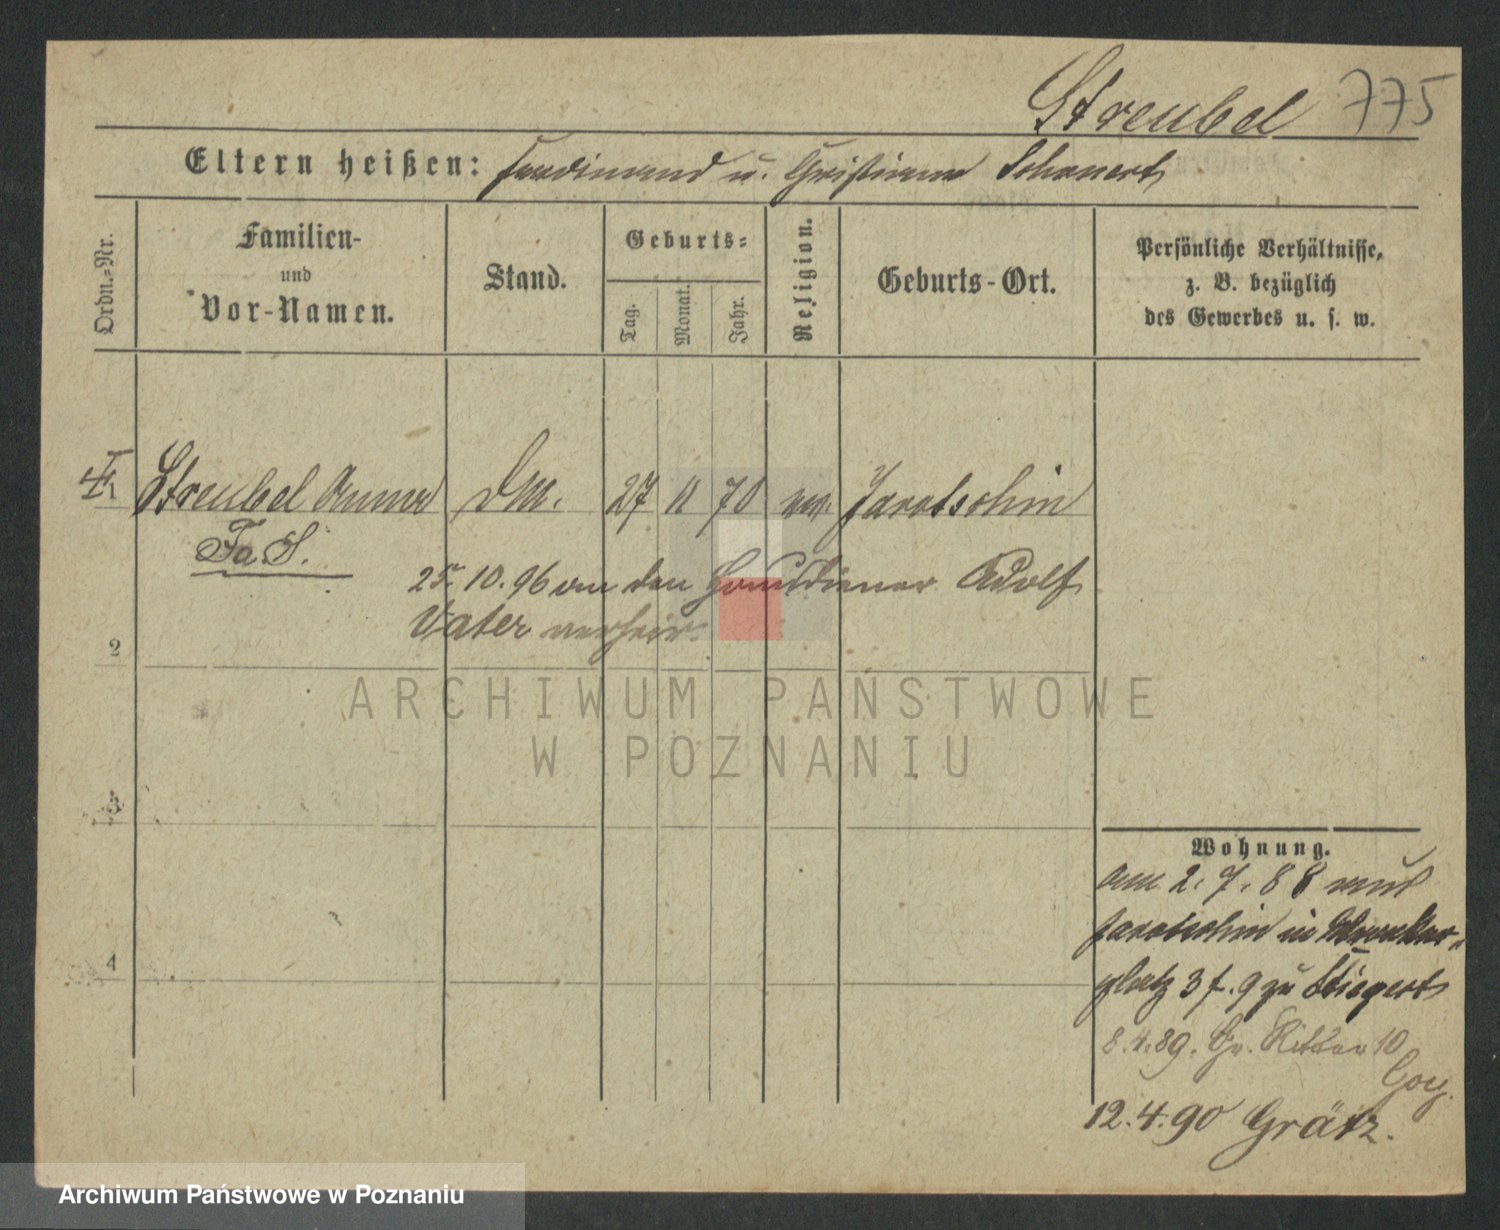 Streubel 775
Eltern heißen: Ferdinand u. Christiane Schanert
Ordn.-Nr.
Familien-
und
Vor-Namen.
Stand.
Geburts-
Tag.
Monat.
Jahr.
Religion.
Geburts-Ort.
Persönliche Verhältnisse,
z. B. bezüglich
des Gewerbes u. s. w.
1 Streubel Anna DM. 27 11 70 ev. Jarotschin
25.10.96 an den Hausdiener Adolf
Vater verheir.
2
3
4
ARCHIWUM PAŃSTWOWE
W POZNANIU
Wohnung.
am 2. 7. 88 aus
Jarotschin in
platz 3 f. 9 zu Stiegert
8.4.89. Gr. Ritter 10
12.4.90 Grätz.
Archiwum Państwowe w Poznaniu